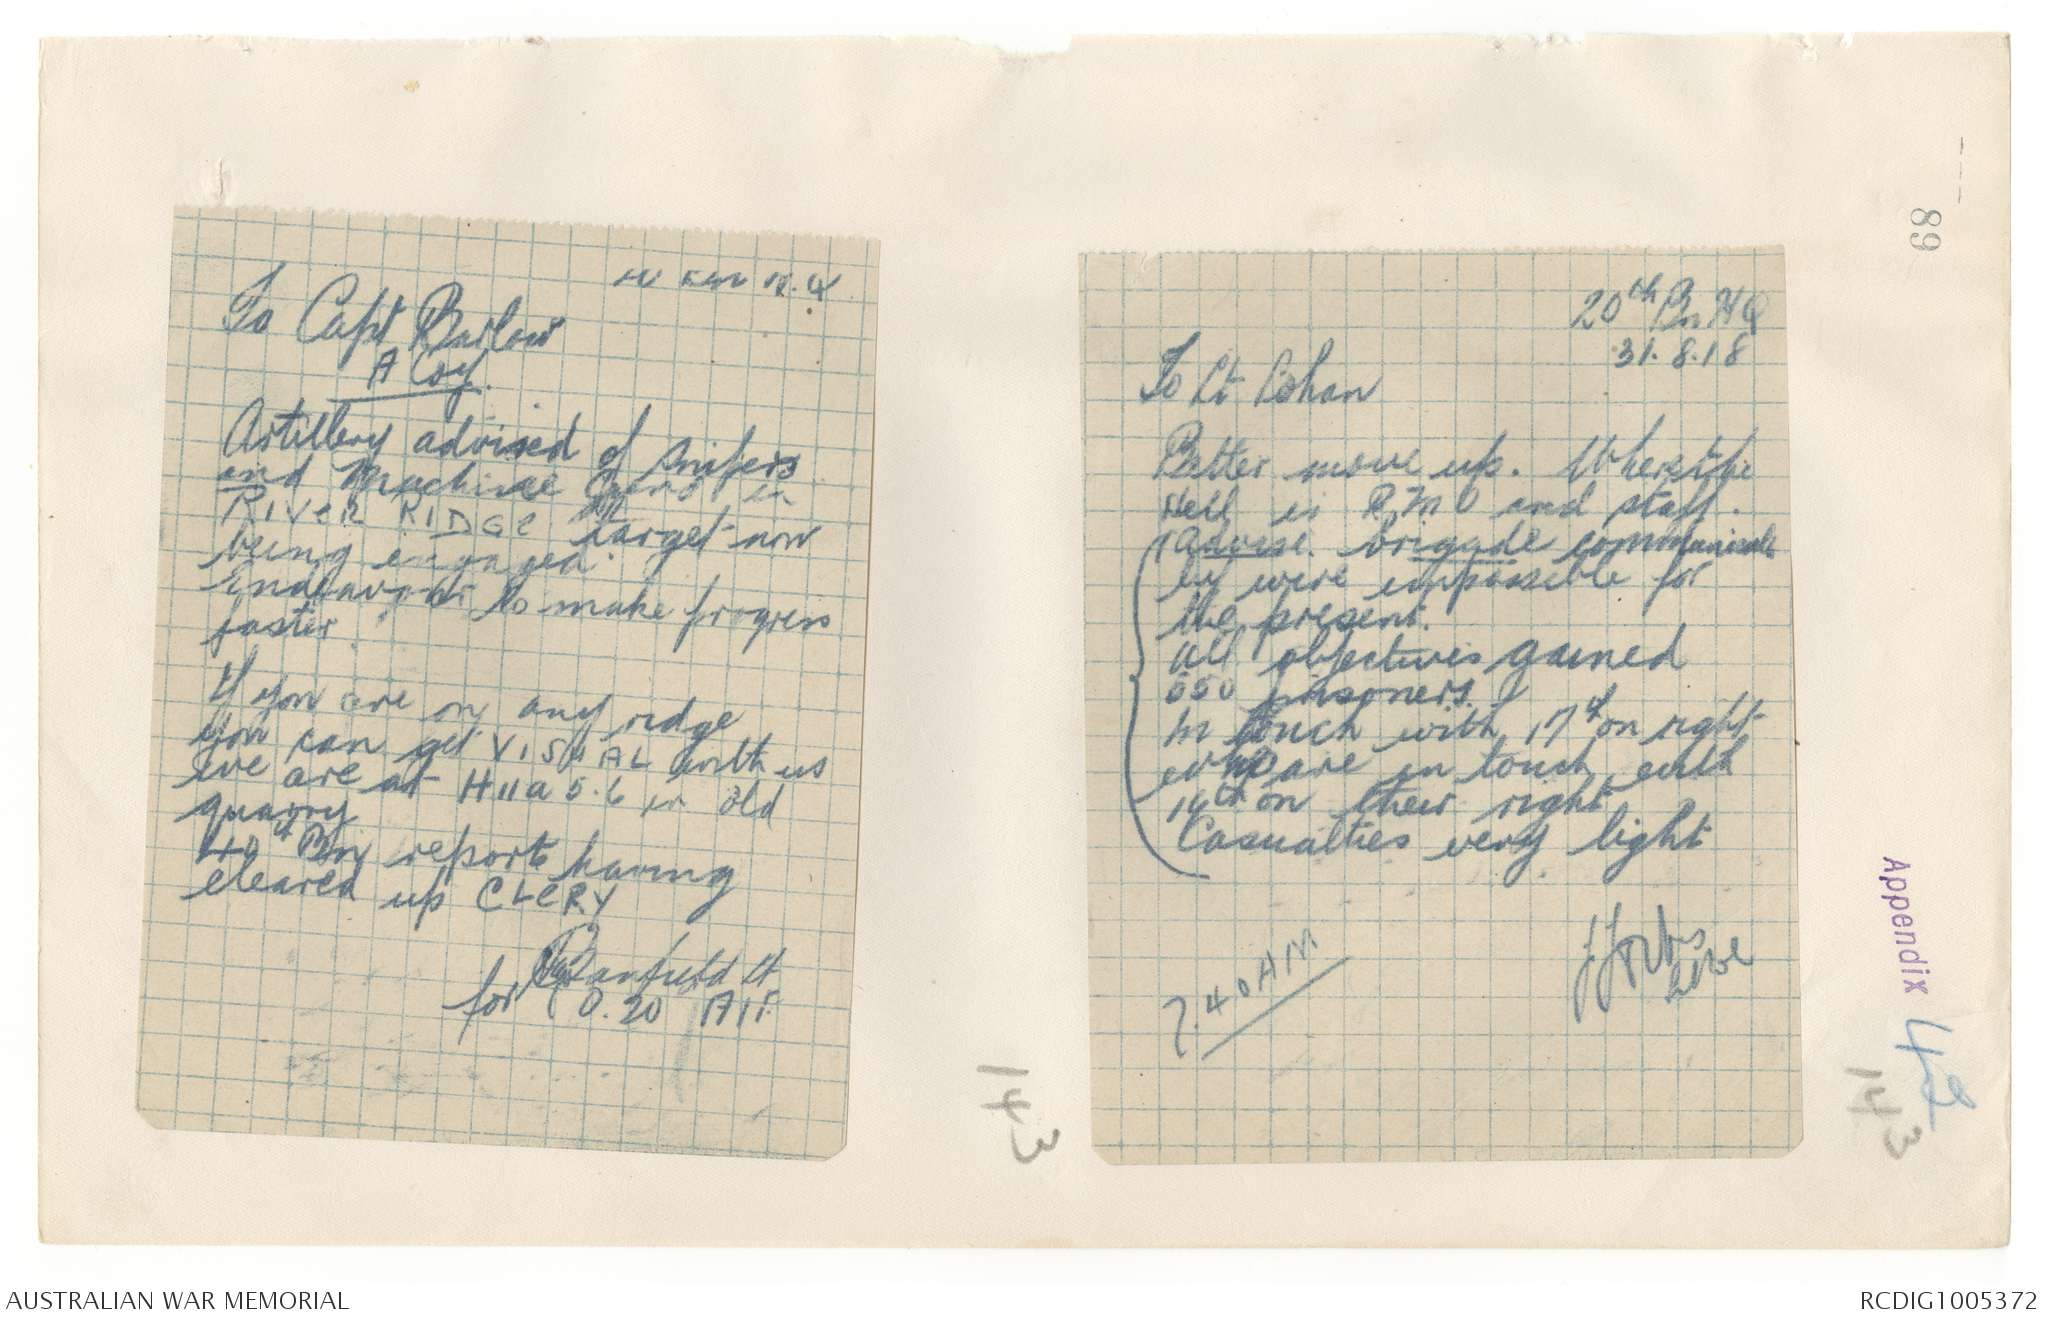 H.Q.
To Capt Barlow
A Coy.
Artillery advised of snipers
and Machine Guns in
RIVER RIDGE target now
being engaged.
Endeavour to make progress
faster.
If you are on any ridge
you can get VISUAL with us
we are at H11a 5.6 in old
quarry
40th Bn report having
cleared up CLERY
Banfield Lt
for CO. 20 AIF.
143
20th Bn HQ
31.8.18
To Lt Cohan
Better move up. Where the
Hell is R.M.O and staff.
Advise brigade communicate
by wire impossible for
the present.
All objectives gained
550 prisoners.
In touch with 17th on right
who are in touch with
19th on their right
Casualties very light
7.40AM
89
Appendix 42
143
AUSTRALIAN WAR MEMORIAL
RCDIG1005372